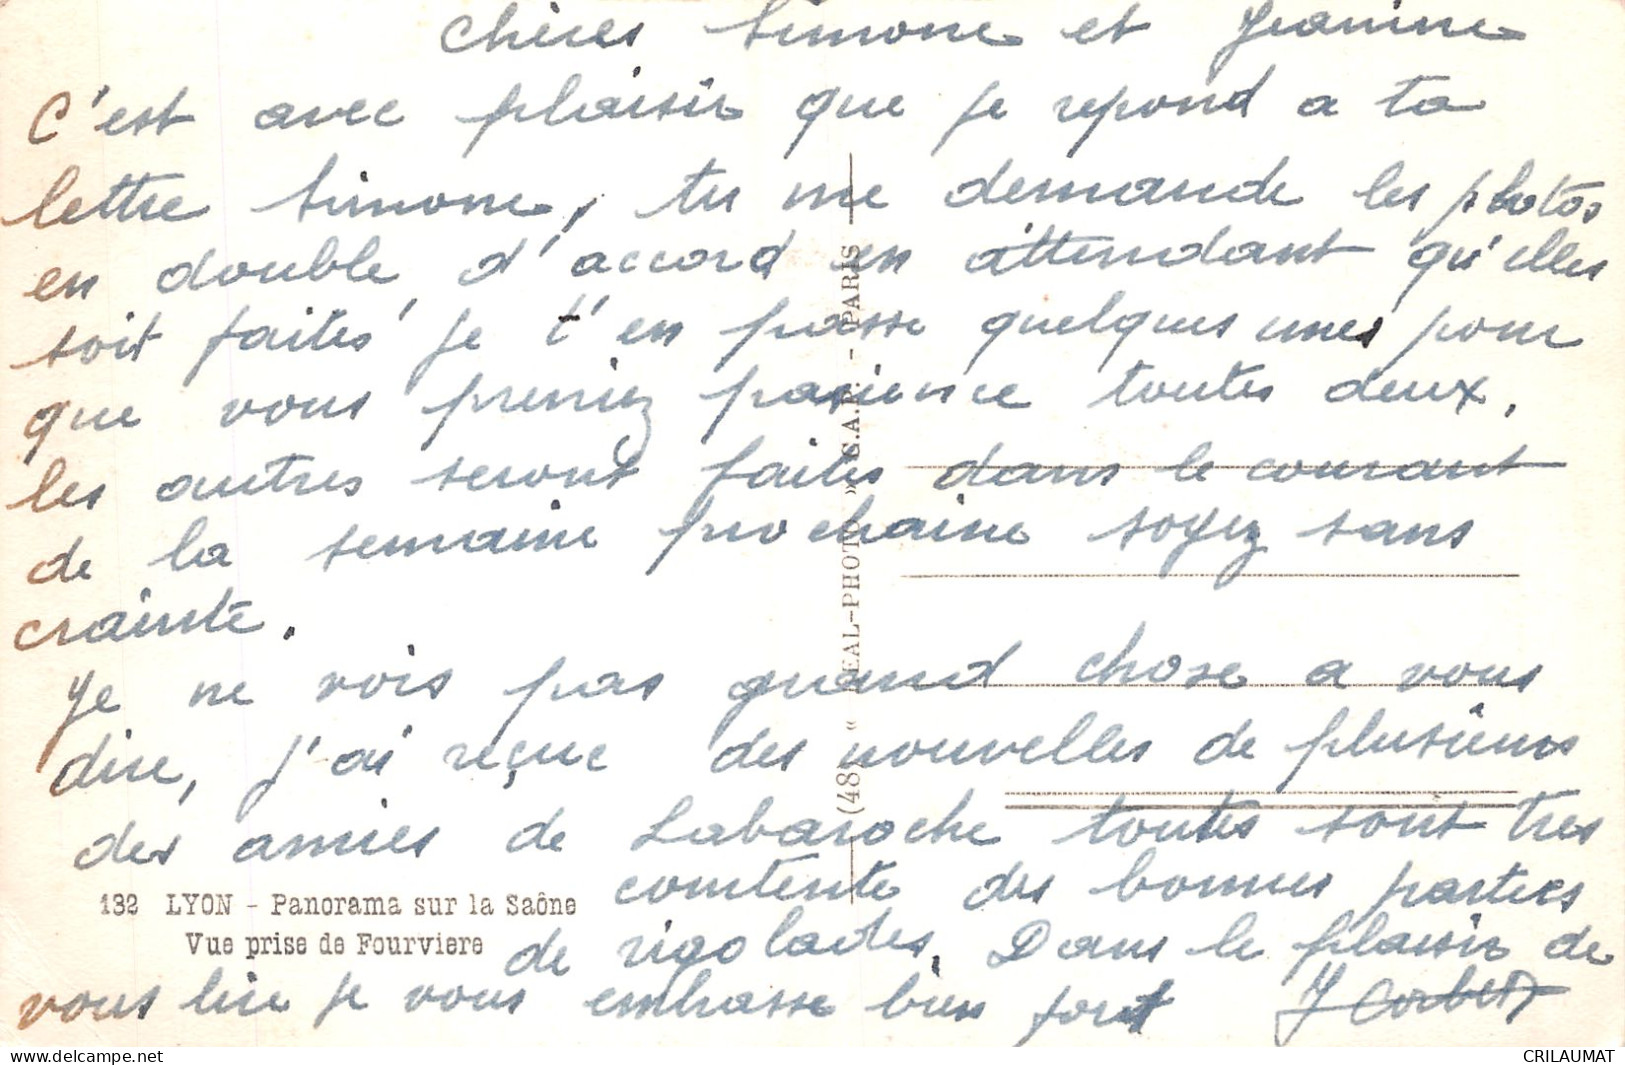 Chères Simone et Jeanine
C'est avec plaisir que je repond a ta
lettre Simone, tu me demande les photos
en double, d'accord en attendant qu'elles
soit faites je t'en passe quelques unes pour
que vous preniez pasience toutes deux,
les autres seront faites dans le courant
de la semaine prochaine soyez sans
crainte.
Je ne vois pas grand chose a vous
dire, j'ai reçue des nouvelles de plusieurs
des amies de Labaroche toutes sont tres
contente des bonnes parties
de rigolades. Dans le plaisir de
vous lire je vous embrasse bien fort
132 LYON - Panorama sur la Saône
Vue prise de Fourviere
(48) « REAL-PHOTO » C.A.P. - PARIS
CRILAUMAT